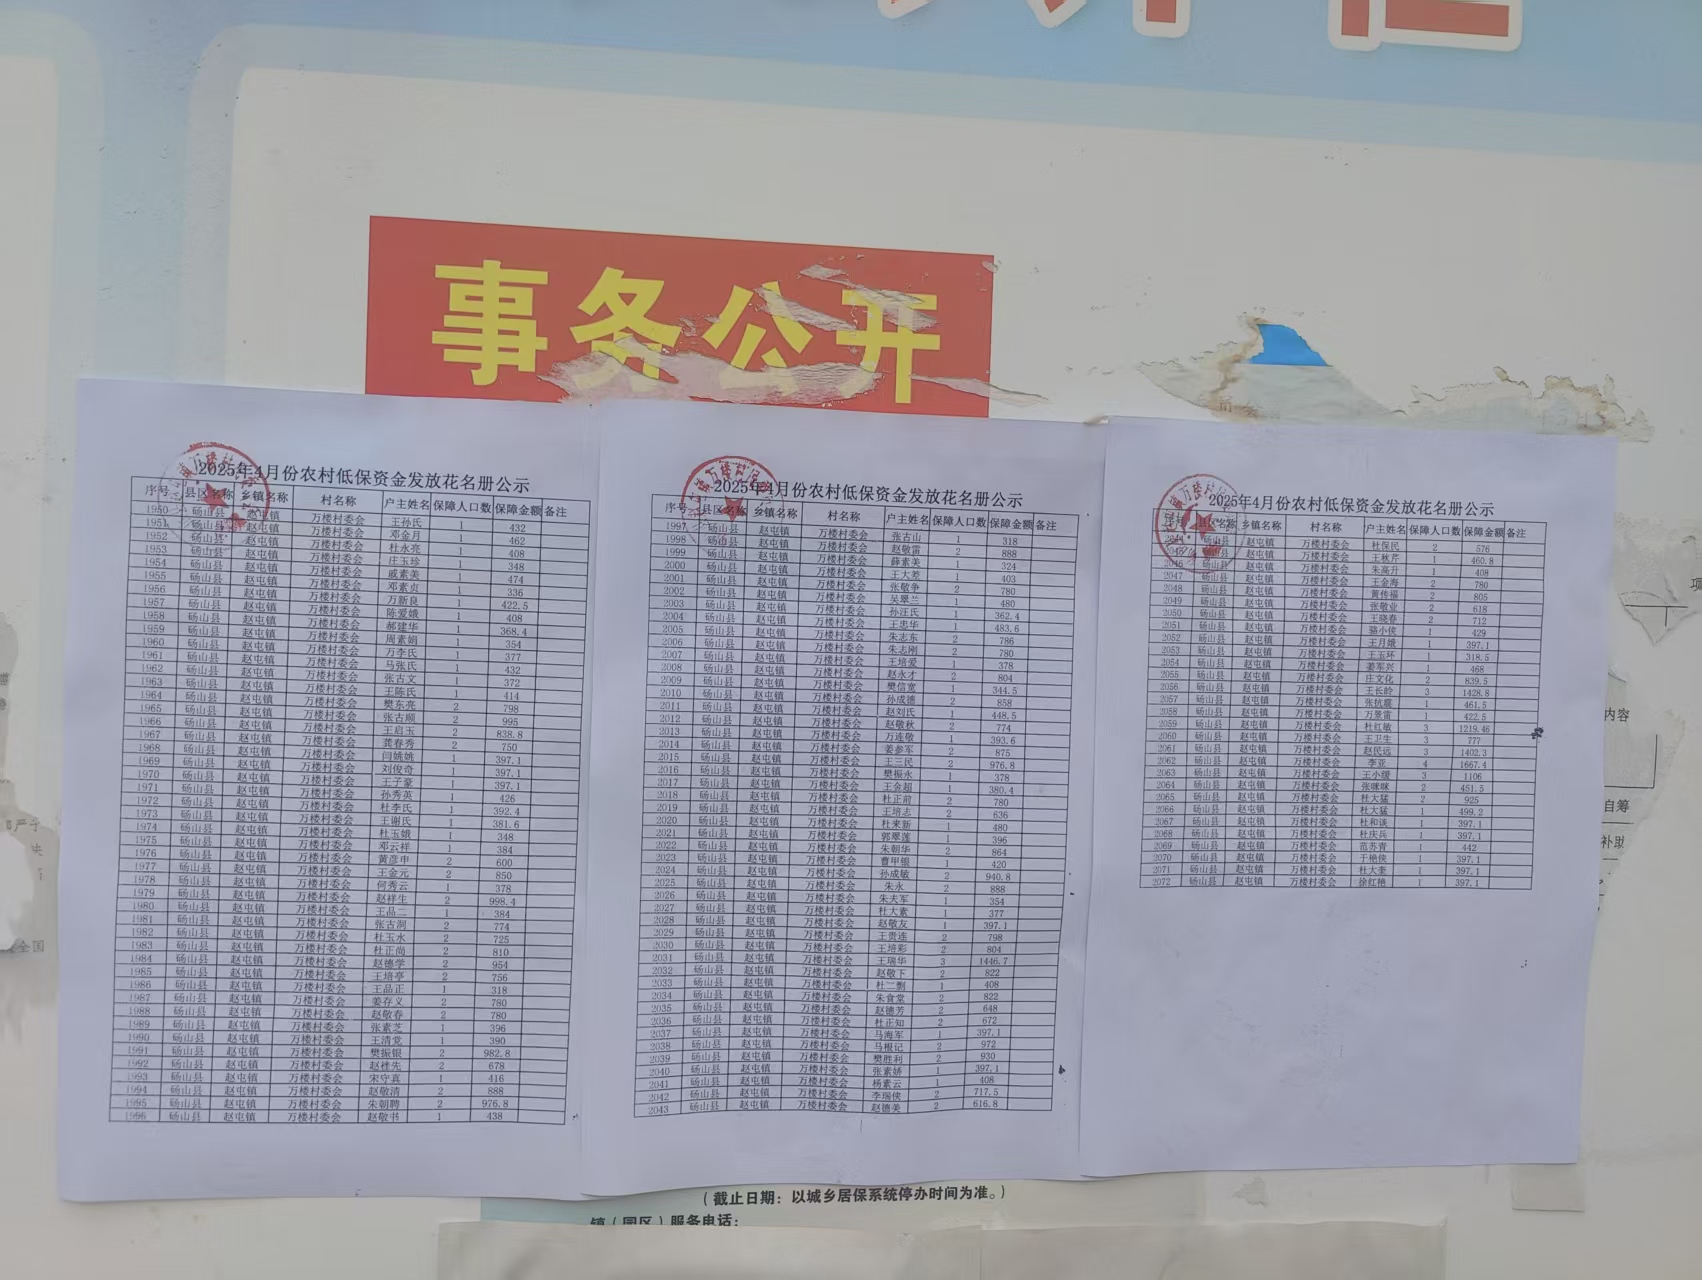 事务公开
2025年4月份农村低保资金发放花名册公示
序号 县区名称 乡镇名称 村名称 户主姓名 保障人口数 保障金额 备注
1950 砀山县 赵屯镇 万楼村委会 王孙氏 1 432
1951 砀山县 赵屯镇 万楼村委会 邓金月 1 462
1952 砀山县 赵屯镇 万楼村委会 杜永亮 1 408
1953 砀山县 赵屯镇 万楼村委会 庄玉珍 1 348
1954 砀山县 赵屯镇 万楼村委会 戚素美 1 474
1955 砀山县 赵屯镇 万楼村委会 邓素贞 1 336
1956 砀山县 赵屯镇 万楼村委会 万新良 1 422.5
1957 砀山县 赵屯镇 万楼村委会 陈爱娥 1 408
1958 砀山县 赵屯镇 万楼村委会 郝建华 1 368.4
1959 砀山县 赵屯镇 万楼村委会 周素娟 1 354
1960 砀山县 赵屯镇 万楼村委会 万李氏 1 377
1961 砀山县 赵屯镇 万楼村委会 马张氏 1 432
1962 砀山县 赵屯镇 万楼村委会 张古文 1 372
1963 砀山县 赵屯镇 万楼村委会 王陈氏 1 414
1964 砀山县 赵屯镇 万楼村委会 樊东亮 2 798
1965 砀山县 赵屯镇 万楼村委会 张古顺 2 995
1966 砀山县 赵屯镇 万楼村委会 王启玉 2 838.8
1967 砀山县 赵屯镇 万楼村委会 龚春秀 2 750
1968 砀山县 赵屯镇 万楼村委会 闫姚姚 1 397.1
1969 砀山县 赵屯镇 万楼村委会 刘俊奇 1 397.1
1970 砀山县 赵屯镇 万楼村委会 王子豪 1 397.1
1971 砀山县 赵屯镇 万楼村委会 孙秀英 1 426
1972 砀山县 赵屯镇 万楼村委会 杜李氏 1 392.4
1973 砀山县 赵屯镇 万楼村委会 王谢氏 1 381.6
1974 砀山县 赵屯镇 万楼村委会 杜玉娥 1 348
1975 砀山县 赵屯镇 万楼村委会 邓云祥 1 384
1976 砀山县 赵屯镇 万楼村委会 黄彦申 2 600
1977 砀山县 赵屯镇 万楼村委会 王金元 2 850
1978 砀山县 赵屯镇 万楼村委会 何秀云 1 378
1979 砀山县 赵屯镇 万楼村委会 赵祥生 2 998.4
1980 砀山县 赵屯镇 万楼村委会 王品二 1 384
1981 砀山县 赵屯镇 万楼村委会 张古洞 2 774
1982 砀山县 赵屯镇 万楼村委会 杜玉水 2 725
1983 砀山县 赵屯镇 万楼村委会 杜正尚 2 810
1984 砀山县 赵屯镇 万楼村委会 赵德学 2 954
1985 砀山县 赵屯镇 万楼村委会 王培亭 2 756
1986 砀山县 赵屯镇 万楼村委会 王品正 1 318
1987 砀山县 赵屯镇 万楼村委会 姜存义 2 780
1988 砀山县 赵屯镇 万楼村委会 赵敬春 2 780
1989 砀山县 赵屯镇 万楼村委会 张素芝 1 396
1990 砀山县 赵屯镇 万楼村委会 王清党 1 390
1991 砀山县 赵屯镇 万楼村委会 樊振银 2 982.8
1992 砀山县 赵屯镇 万楼村委会 赵桂先 2 678
1993 砀山县 赵屯镇 万楼村委会 宋守真 1 416
1994 砀山县 赵屯镇 万楼村委会 赵敬清 2 888
1995 砀山县 赵屯镇 万楼村委会 朱朝聘 2 976.8
1996 砀山县 赵屯镇 万楼村委会 赵敬书 1 438
2025年4月份农村低保资金发放花名册公示
序号 县区名称 乡镇名称 村名称 户主姓名 保障人口数 保障金额 备注
1997 砀山县 赵屯镇 万楼村委会 张古山 1 318
1998 砀山县 赵屯镇 万楼村委会 赵敬雷 2 888
1999 砀山县 赵屯镇 万楼村委会 薛素美 1 324
2000 砀山县 赵屯镇 万楼村委会 王大差 1 403
2001 砀山县 赵屯镇 万楼村委会 张敬争 2 780
2002 砀山县 赵屯镇 万楼村委会 吴翠兰 1 480
2003 砀山县 赵屯镇 万楼村委会 孙汪氏 1 362.4
2004 砀山县 赵屯镇 万楼村委会 王忠华 1 483.6
2005 砀山县 赵屯镇 万楼村委会 朱志东 2 786
2006 砀山县 赵屯镇 万楼村委会 朱志刚 2 780
2007 砀山县 赵屯镇 万楼村委会 王培爱 1 378
2008 砀山县 赵屯镇 万楼村委会 赵永才 2 804
2009 砀山县 赵屯镇 万楼村委会 樊信宽 1 344.5
2010 砀山县 赵屯镇 万楼村委会 孙成德 2 858
2011 砀山县 赵屯镇 万楼村委会 赵刘氏 1 448.5
2012 砀山县 赵屯镇 万楼村委会 赵敬秋 2 774
2013 砀山县 赵屯镇 万楼村委会 万连敬 1 393.6
2014 砀山县 赵屯镇 万楼村委会 姜参军 2 875
2015 砀山县 赵屯镇 万楼村委会 王三民 2 976.8
2016 砀山县 赵屯镇 万楼村委会 樊振永 1 378
2017 砀山县 赵屯镇 万楼村委会 王金超 1 380.4
2018 砀山县 赵屯镇 万楼村委会 杜正前 2 780
2019 砀山县 赵屯镇 万楼村委会 王培志 2 636
2020 砀山县 赵屯镇 万楼村委会 杜来新 1 480
2021 砀山县 赵屯镇 万楼村委会 郭翠莲 1 396
2022 砀山县 赵屯镇 万楼村委会 朱朝华 2 864
2023 砀山县 赵屯镇 万楼村委会 曹甲银 1 420
2024 砀山县 赵屯镇 万楼村委会 孙成敏 2 940.8
2025 砀山县 赵屯镇 万楼村委会 朱永 2 888
2026 砀山县 赵屯镇 万楼村委会 朱夫军 1 354
2027 砀山县 赵屯镇 万楼村委会 杜大素 1 377
2028 砀山县 赵屯镇 万楼村委会 赵敬友 1 397.1
2029 砀山县 赵屯镇 万楼村委会 王贵连 2 798
2030 砀山县 赵屯镇 万楼村委会 王培彩 2 804
2031 砀山县 赵屯镇 万楼村委会 王瑞华 3 1446.7
2032 砀山县 赵屯镇 万楼村委会 赵敬下 2 822
2033 砀山县 赵屯镇 万楼村委会 杜二剽 1 408
2034 砀山县 赵屯镇 万楼村委会 朱食堂 2 822
2035 砀山县 赵屯镇 万楼村委会 赵德芳 2 648
2036 砀山县 赵屯镇 万楼村委会 杜正知 2 672
2037 砀山县 赵屯镇 万楼村委会 马海军 1 397.1
2038 砀山县 赵屯镇 万楼村委会 马根记 2 972
2039 砀山县 赵屯镇 万楼村委会 樊胜利 2 930
2040 砀山县 赵屯镇 万楼村委会 张素娇 1 397.1
2041 砀山县 赵屯镇 万楼村委会 杨素云 1 408
2042 砀山县 赵屯镇 万楼村委会 李瑞侠 2 717.5
2043 砀山县 赵屯镇 万楼村委会 赵德美 2 616.8
2025年4月份农村低保资金发放花名册公示
县区名称 乡镇名称 村名称 户主姓名 保障人口数 保障金额 备注
2044 砀山县 赵屯镇 万楼村委会 杜保民 2 576
2045 砀山县 赵屯镇 万楼村委会 王秋芹 1 460.8
2046 砀山县 赵屯镇 万楼村委会 朱高升 1 408
2047 砀山县 赵屯镇 万楼村委会 王金海 2 780
2048 砀山县 赵屯镇 万楼村委会 黄传福 2 805
2049 砀山县 赵屯镇 万楼村委会 张敬业 2 618
2050 砀山县 赵屯镇 万楼村委会 王晓春 2 712
2051 砀山县 赵屯镇 万楼村委会 骆小侠 1 429
2052 砀山县 赵屯镇 万楼村委会 王月娥 1 397.1
2053 砀山县 赵屯镇 万楼村委会 王玉环 1 318.5
2054 砀山县 赵屯镇 万楼村委会 姜军兴 1 468
2055 砀山县 赵屯镇 万楼村委会 庄文化 2 839.5
2056 砀山县 赵屯镇 万楼村委会 王长岭 3 1428.8
2057 砀山县 赵屯镇 万楼村委会 张抗震 1 461.5
2058 砀山县 赵屯镇 万楼村委会 万景雷 1 422.5
2059 砀山县 赵屯镇 万楼村委会 杜红敏 3 1219.46
2060 砀山县 赵屯镇 万楼村委会 王卫生 3 777
2061 砀山县 赵屯镇 万楼村委会 赵民远 3 1402.3
2062 砀山县 赵屯镇 万楼村委会 李亚 4 1667.4
2063 砀山县 赵屯镇 万楼村委会 王小缓 3 1106
2064 砀山县 赵屯镇 万楼村委会 张咪咪 2 451.5
2065 砀山县 赵屯镇 万楼村委会 杜大猛 2 925
2066 砀山县 赵屯镇 万楼村委会 杜大猛 1 499.2
2067 砀山县 赵屯镇 万楼村委会 杜和谈 1 397.1
2068 砀山县 赵屯镇 万楼村委会 杜庆兵 1 397.1
2069 砀山县 赵屯镇 万楼村委会 范苏青 1 442
2070 砀山县 赵屯镇 万楼村委会 于艳侠 1 397.1
2071 砀山县 赵屯镇 万楼村委会 杜大奎 1 397.1
2072 砀山县 赵屯镇 万楼村委会 徐红艳 1 397.1
内容
自筹
补助
全国
(截止日期：以城乡居保系统停办时间为准。)
镇（园区）服务电话：